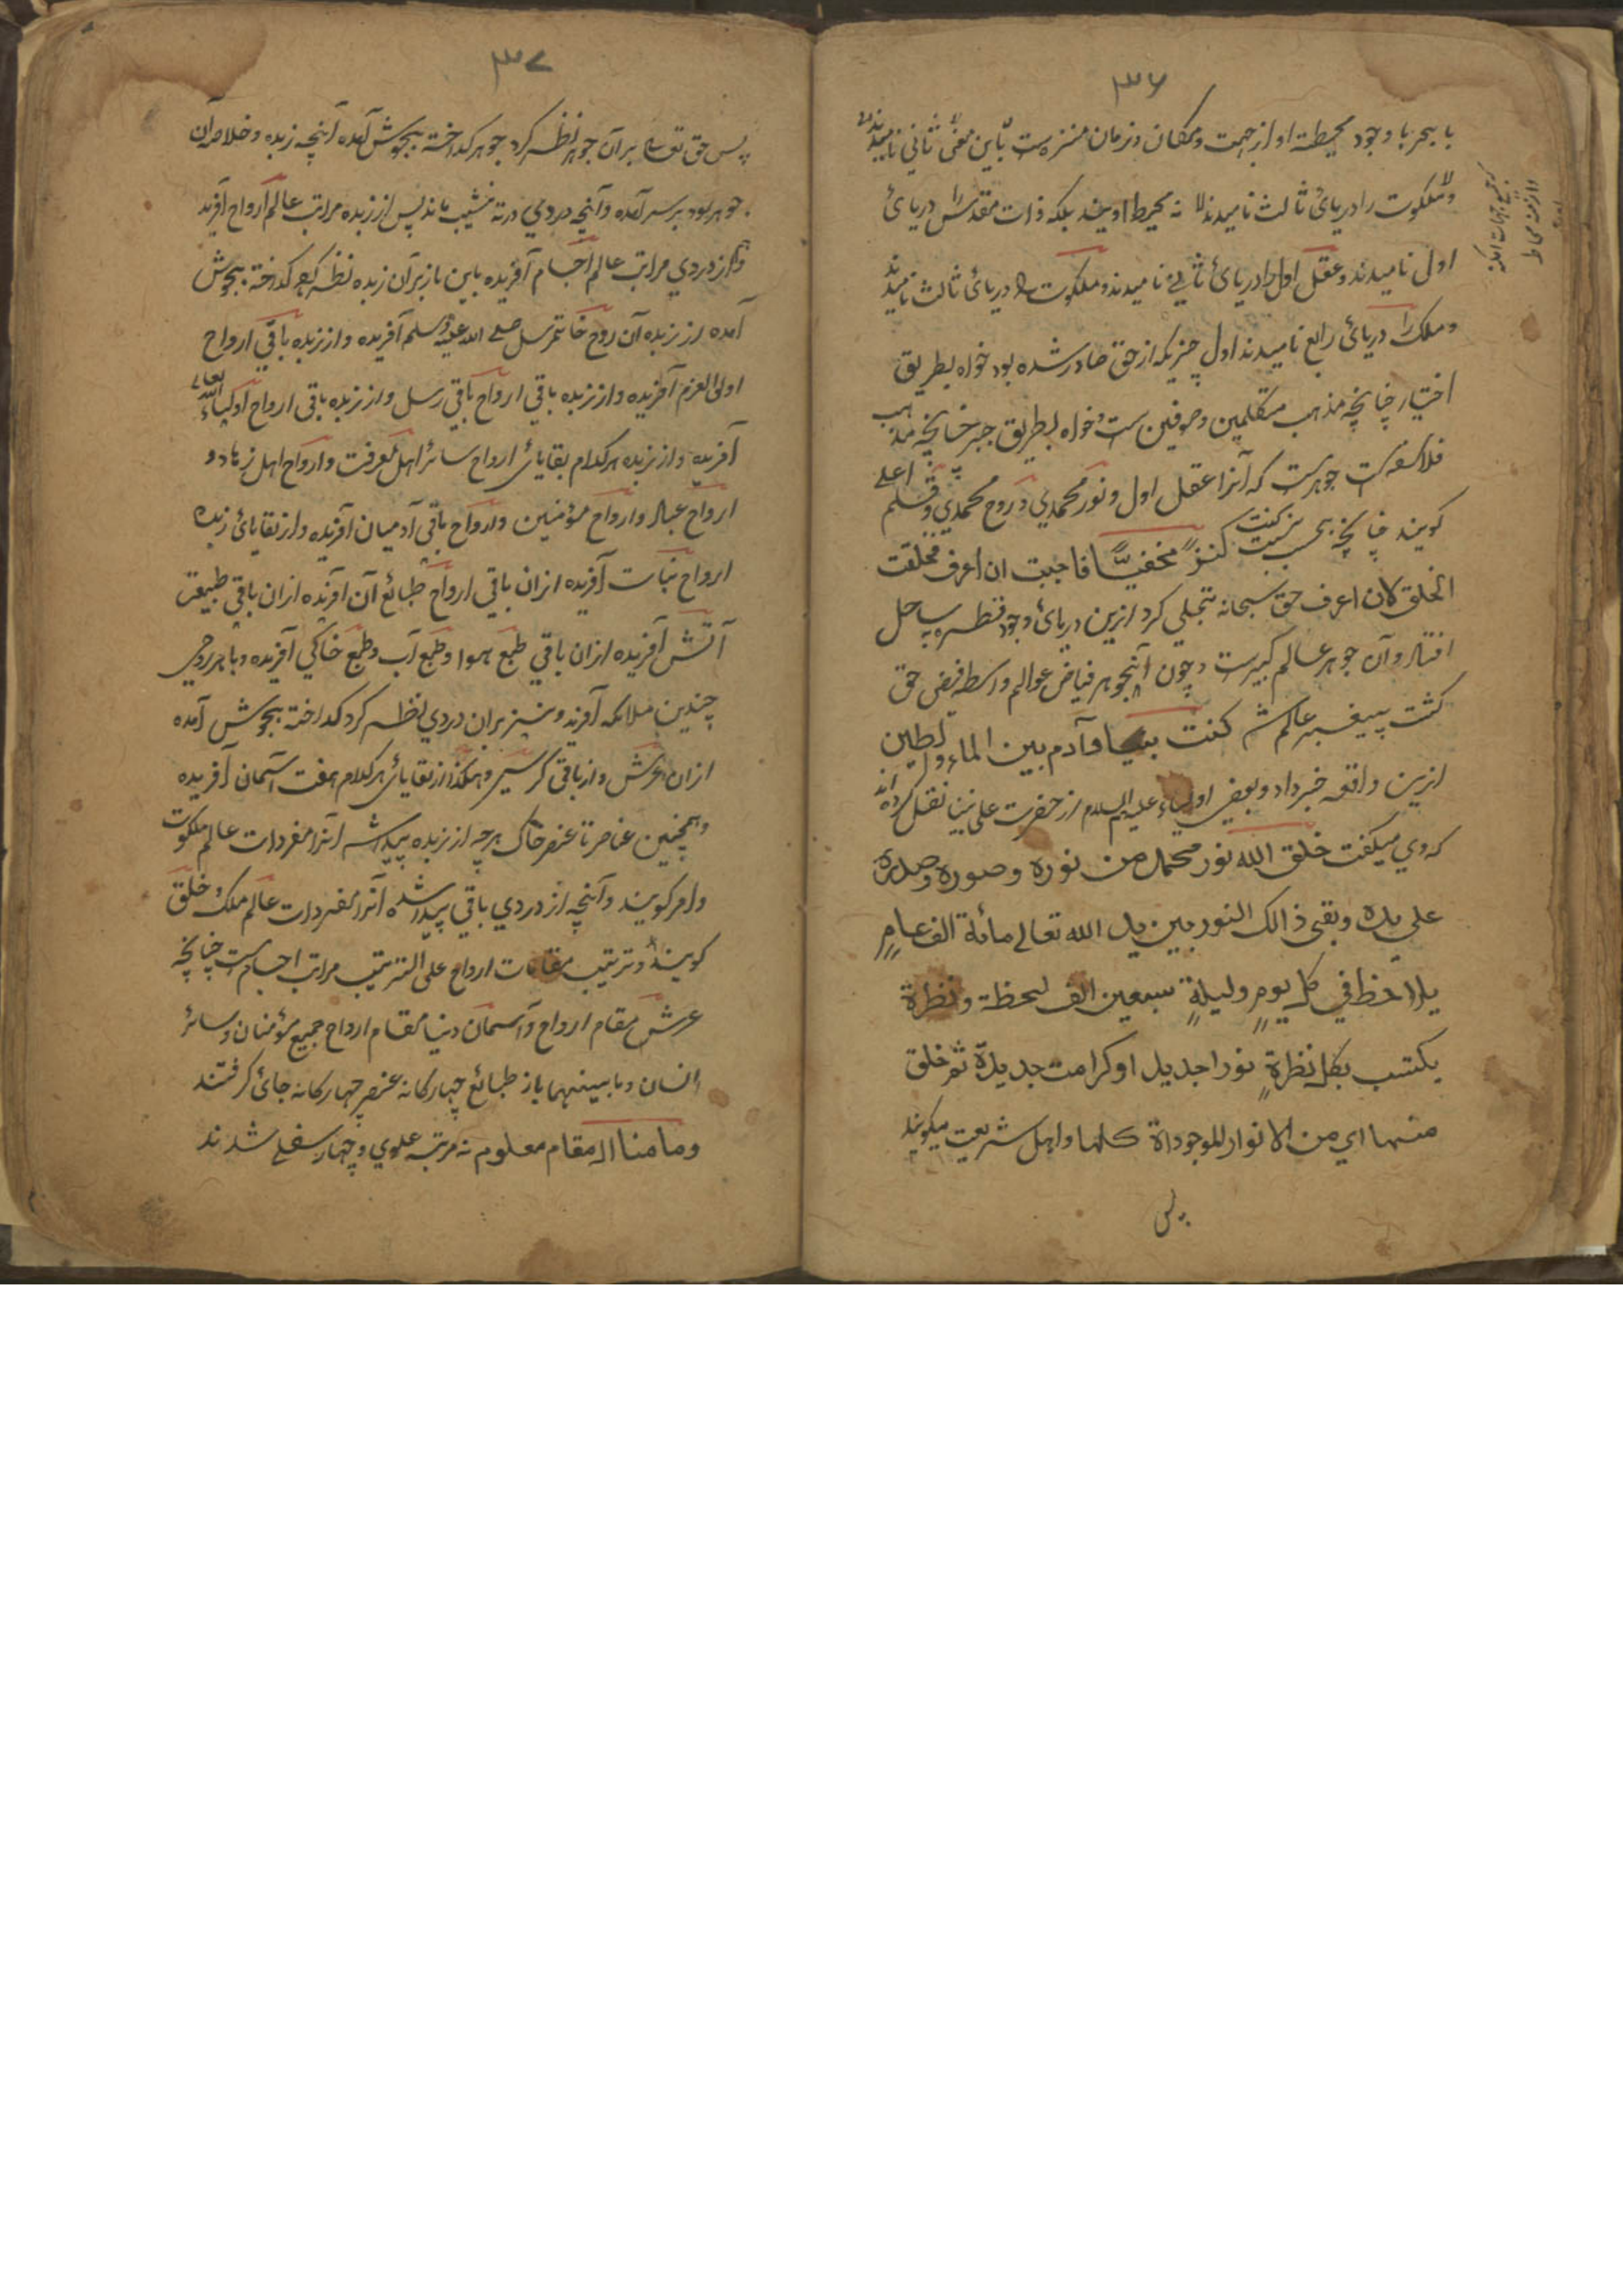 ۳۶
با بحر با وجود محیطه او از جهت و مکان و زمان منزه ست باین معنی ثانی نامیدند
و ملکوت را دریائ ثالث نامیدند لا نه محیط اویند بلکه ذات مقدس را دریائ
اول نامیدند و عقل اول را دریائ ثانی نامیدند و ملکوت را دریائ ثالث نامیدند
و ملک را دریائ رابع نامیدند اول چیزیکه از حق صادر شده بود خواه بطریق
اختیار چنانچه مذهب متکلمین و صوفین ست و خواه بطریق جبر چنانچه مذهب
فلاسفه است جوهرست که آنرا عقل اول و نور محمدي و روح محمدي و قلم اعلے
کویند چنانچه بحسب کنت کنزً مخفیًّا فاحببت ان اعرف فخلقت
الخلق لان اعرف حق سبحانه تجلي کرد ازین دریائ وجود قطره بساحل
افتاد و آن جوهر عالم کبیرست و چون آنجوهر فیاض عوالم واسطه فیض حق
کشت پیغمبر عالم کنت نبیا و آدم بین الماء والطین
ازین واقعه خبر داد و بعضي اولیاء علیه السلام از حضرت علي نقل کرده اند
که وي میکفت خلق الله نور محمد من نوره وصوره وصدره
علی یده وبقی ذالک النور بین ید الله تعالے مائة الف عامٍ
یلاحظ في کل یومٍ ولیلةٍ سبعین الف لحظة ونظرة
یکتسب بکل نظرةٍ نورا جدیدا وکرامت جدیدة ثم خلق
منها اي من الانوار للموجوداة کلها و اهل شریعت میکویند
پس
۳۷
پس حق تعالے بر آن جوهر نظر کرد جوهر کداخته بجوش آمده آنچه زبده و خلاصه آن
جوهر بود بر سر آمده و آنچه دردي در ته نشیب ماند پس از زبده مراتب عالم ارواح آفرید
و از دردي مراتب عالم اجسام آفریده باین باز بر آن زبده نظر کرد کداخته بجوش
آمده از زبده آن روح خاتم رسل صلے الله علیه وسلم آفریده و از زبده باقي ارواح
اولی العزم آفریده و از زبده باقي ارواح باقي رسل و از زبده باقي ارواح اولیاء الله تعالے
آفریده و از زبده هر کدام بقایائ ارواح سائر اهل معرفت و ارواح اهل زهاد و
ارواح عباد و ارواح مؤمنین و ارواح باقي آدمیان آفریده و از بقایائ زبده
ارواح نبات آفریده از ان باقي ارواح طبائع آن آفریده از ان باقي طبیعت
آتش آفریده از ان باقي طبع هوا و طبع آب و طبع خاکي آفریده و با هر روحي
چندین ملائکه آفرید و نیز بران دردي نظر کرد کداخته بجوش آمده
از ان عرش و از باقي کرسي و هکذا از بقایائ هر کدام هفت آسمان آفریده
و همچنین عناصر تا عنصر خاک هر چه از زبده پیدا شد آنرا مفردات عالم ملکوت
و امر کویند و آنچه از دردي باقي پیدا شده آنرا مفردات عالم ملک و خلق
کویند و ترتیب مقامات ارواح علی الترتیب مراتب اجسام ست چنانچه
عرش مقام ارواح و آسمان دنیا مقام ارواح جمیع مؤمنان و سائر
انسان و ما بینهما باز طبائع چهارکانه عنصر چهارکانه جائ کرفتند
وما منا الا مقام معلوم نه مرتبه علوي و چهار سفلے شدند